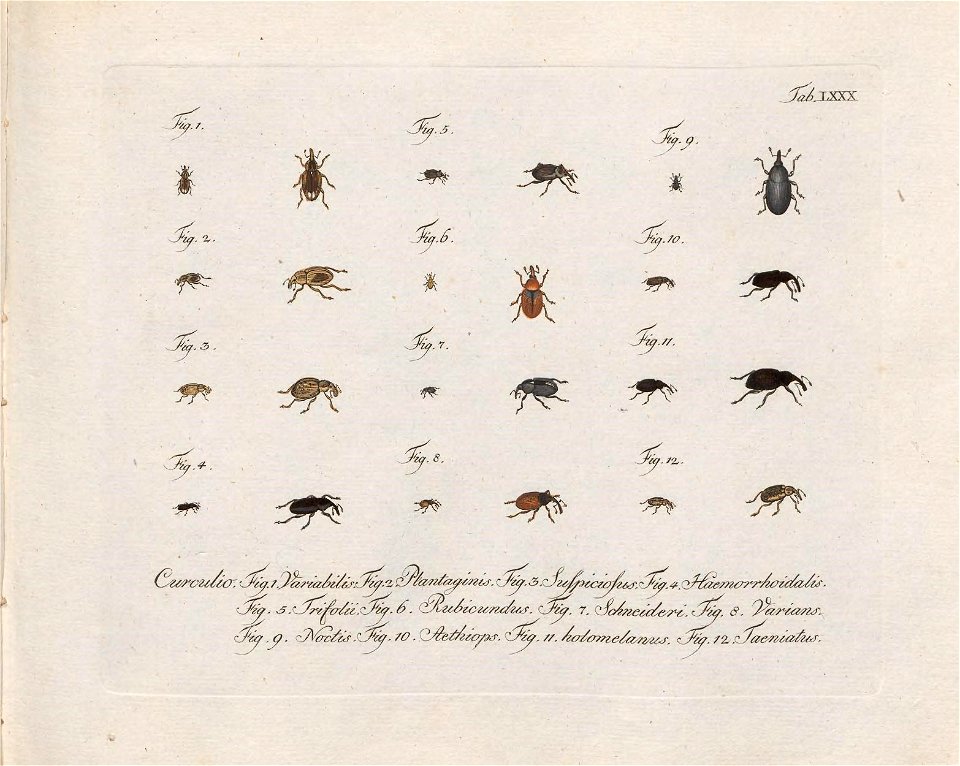 Tab. LXXX
Fig. 1.
Fig. 5.
Fig. 9.
Fig. 2.
Fig. 6.
Fig. 10.
Fig. 3.
Fig. 7.
Fig. 11.
Fig. 4.
Fig. 8.
Fig. 12.
Curculio. Fig. 1. Variabilis. Fig. 2. Plantaginis. Fig. 3. Suſpicioſus. Fig. 4. Haemorrhoidalis.
Fig. 5. Trifolii. Fig. 6. Rubicundus. Fig. 7. Schneideri. Fig. 8. Varians.
Fig. 9. Noctis. Fig. 10. Aethiops. Fig. 11. holomelanus. Fig. 12. Taeniatus.